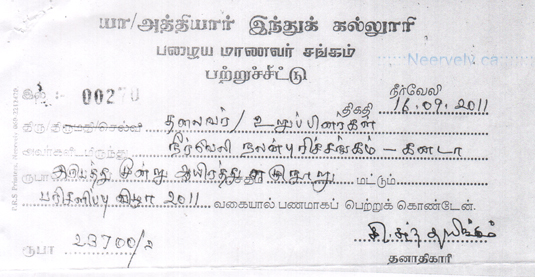 யா/அத்தியார் இந்துக் கல்லூரி
பழைய மாணவர் சங்கம்
Neervely.ca
பற்றுச்சீட்டு
நீர்வேலி
இல :- 00270
திகதி 16.09.2011
திரு/திருமதி/செல்வி தலைவர் / உறுப்பினர்கள்
அவர்களிடமிருந்து நீர்வேலி நலன்புரிச்சங்கம் - கனடா
ரூபா மூன்று ஆயிரத்து மட்டும்
பரிசளிப்பு விழா 2011 வகையால் பணமாகப் பெற்றுக் கொண்டேன்.
ரூபா 23700/=
தனாதிகாரி